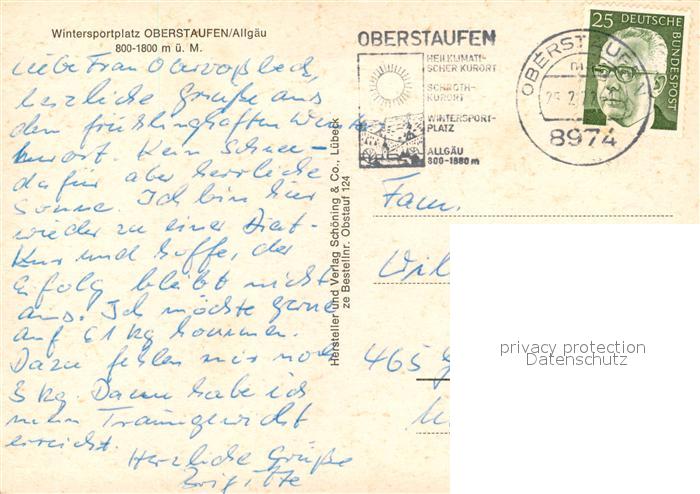 Wintersportplatz OBERSTAUFEN/Allgäu
800-1800 m ü. M.
Liebe Frau
herzliche Grüße aus
dem frühlingshaften Winter
kurort. Kein Schnee -
dafür aber herrliche
Sonne. Ich bin hier
wieder zu einer Diät-
Kur und hoffe, der
Erfolg bleibt nicht
aus. Ich möchte gerne
auf 61 kg kommen.
Dazu fehlen mir noch
3 kg. Dann habe ich
mein Traumgewicht
erreicht.
Herzliche Grüße
Brigitte
Hersteller und Verlag Schöning & Co., Lübeck
ze Bestellnr. Obstauf 124
OBERSTAUFEN
HEILKLIMATI-
SCHER KURORT
SCHROTH-
KURORT
WINTERSPORT-
PLATZ
ALLGÄU
800-1880 m
OBERSTAUFEN
8974
25 DEUTSCHE
BUNDESPOST
Fam.
465
privacy protection
Datenschutz